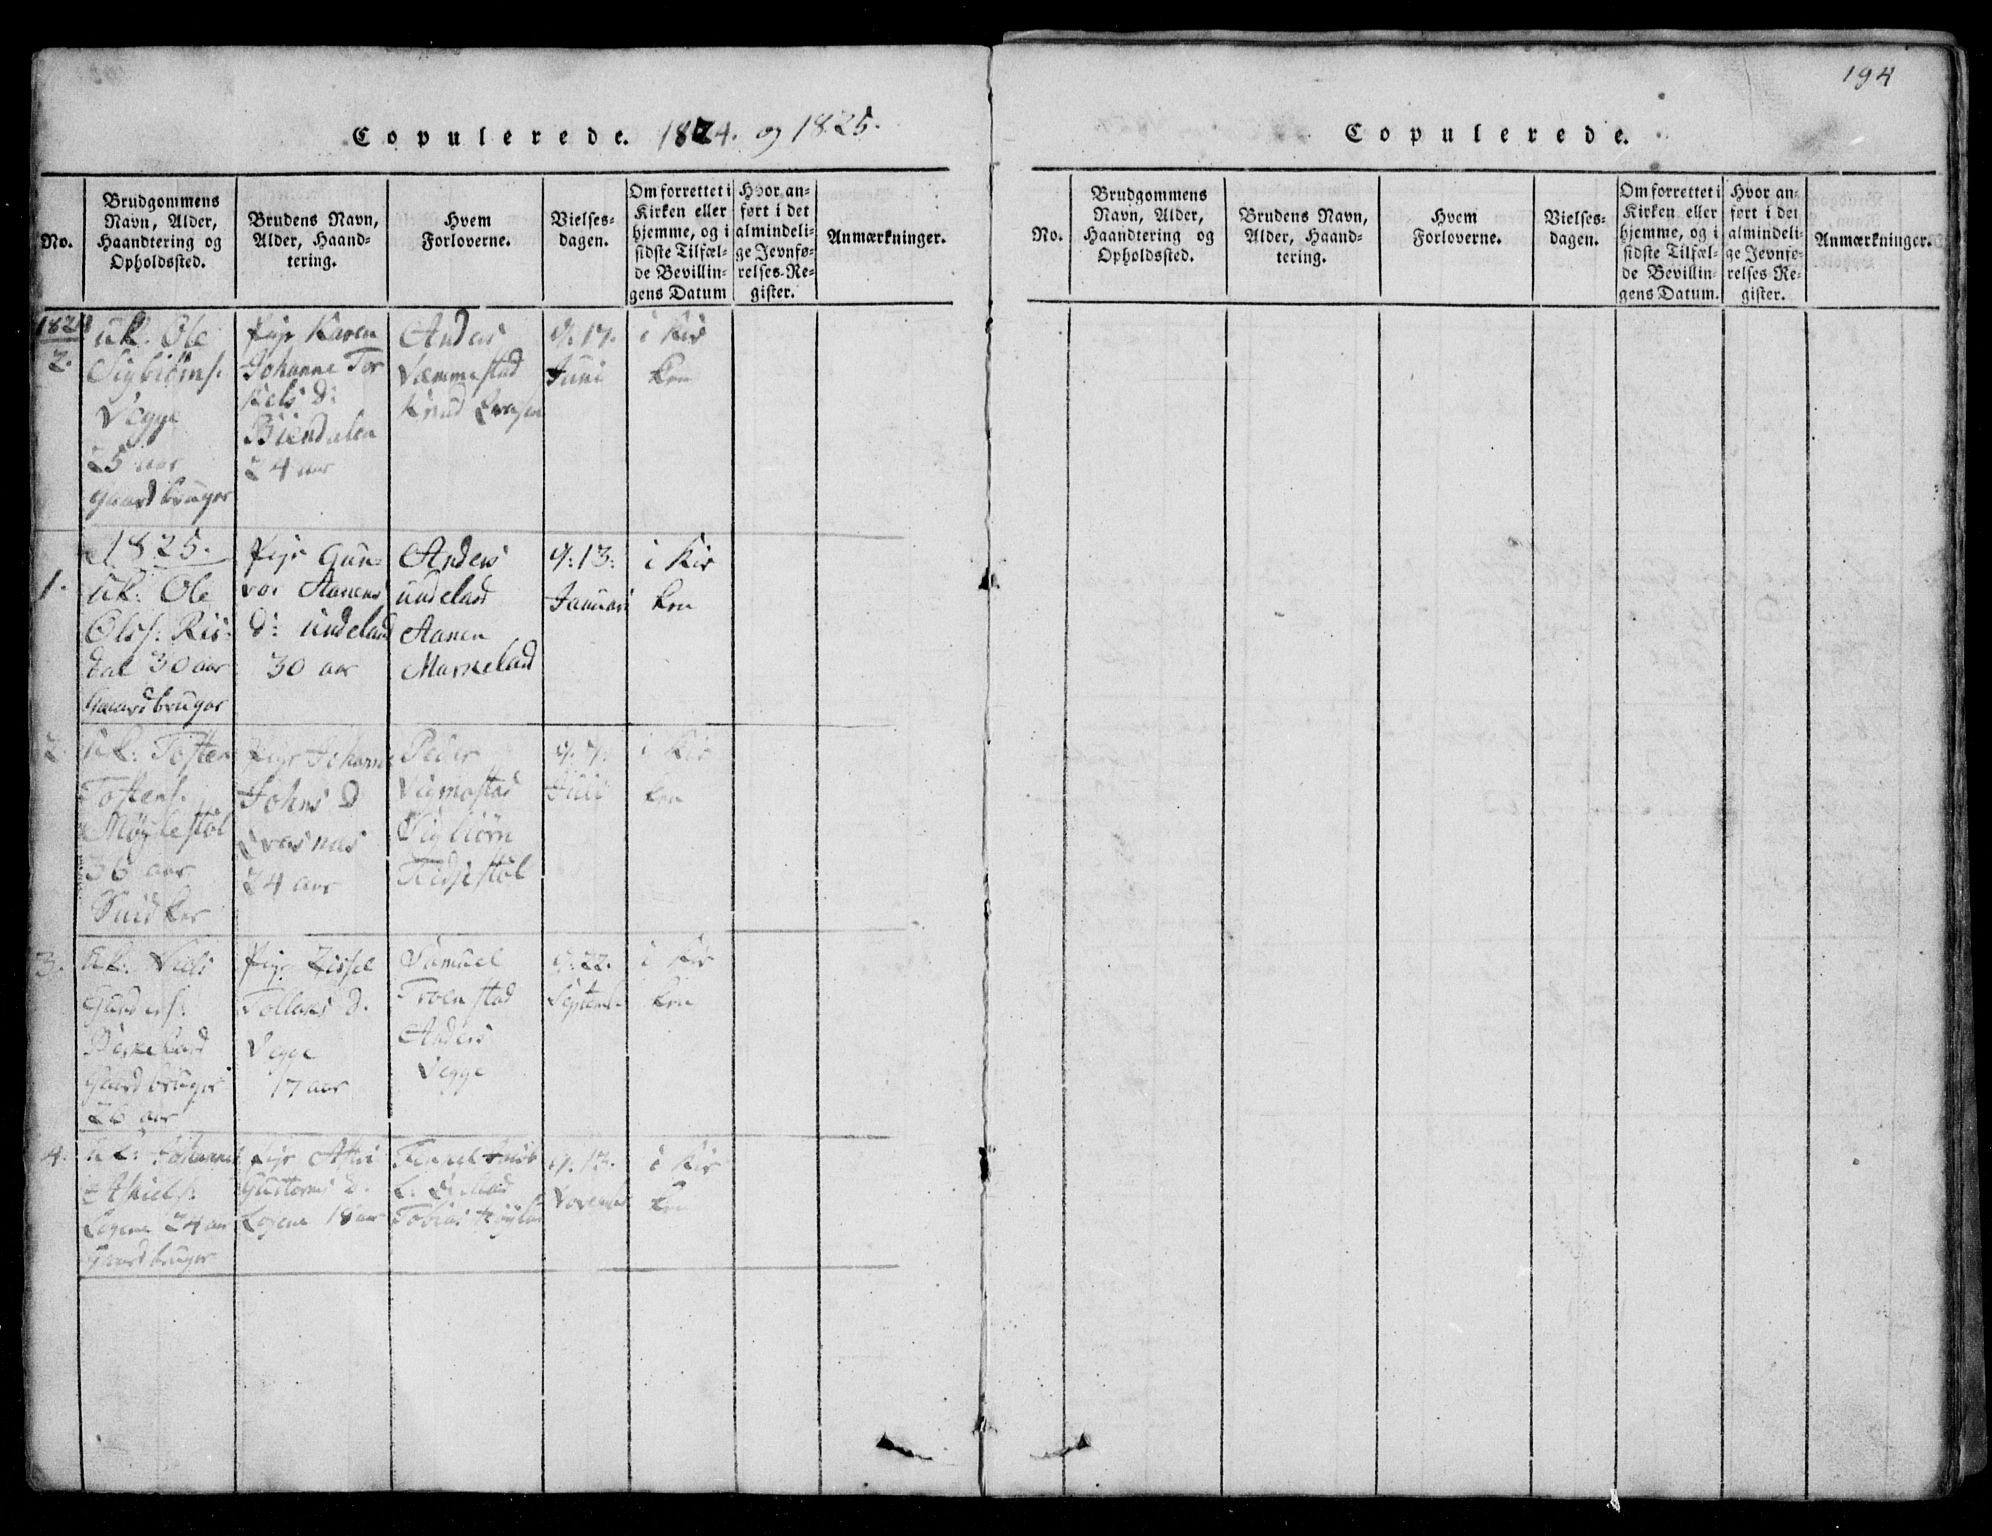 194
Copulerede. 1824. og 1825.
No.
Brudgommens
Navn, Alder,
Haandtering og
Opholdssted.
Brudens Navn,
Alder, Haand-
tering.
Hvem
Forloverne.
Vielses-
dagen.
Om forrettet i
Kirken eller
hjemme, og i
sidste Tilfæl-
de Bevillin-
gens Datum
Hvor an-
ført i det
almindeli-
ge Jevnfø-
relses-Re-
gister.
Anmærkninger.
1824
2.
uk. Ole
Sigbiörns.
Vegge
25 aar
Gaardbruger
Pige Karen
Johanne Tor
kels D:
Biendalen
24 aar
Anders
Væmmestad
Knud
d: 17.
Juni
i Kir
ken
1825.
1.
uk: Ole
Olss. Ris-
dal 30 aar
Gaardbruger
Pige Gun-
vor Aanens
D: Undeland
30 aar
Anders
Undeland
Aanen
Markeland
d: 13:
Januari
i Kir
ken
2.
uk: Tosten
Tostens.
Møglestøl
36 aar
Snidker
Pige Johanne
Johns D
24 aar
Peder
Vigmostad
Sigbiörn
d: 7.
Juli
i Kir
ken
3.
uk. Niels
Gunders.
Birkeland
Gaardbruger
26 aar
Pige Zissel
Tollaks D.
Vegge
17 aar
Samuel
Troenstad
Anders
Vegge
d: 22.
Septemb.
i Kir
ken
4.
uk: Johannes
24 aar
Gaardbruger
Pige Astri
Gusters D.
18 aar
Tobias
d: 13.
November
i Kir
ken
Copulerede.
No.
Brudgommens
Navn, Alder,
Haandtering og
Opholdssted.
Brudens Navn,
Alder, Haand-
tering.
Hvem
Forloverne.
Vielses-
dagen.
Om forrettet i
Kirken eller
hjemme, og i
sidste Tilfæl-
de Bevillin-
gens Datum.
Hvor an-
ført i det
almindeli-
ge Jevnfø-
relses Re-
gister.
Anmærkninger.